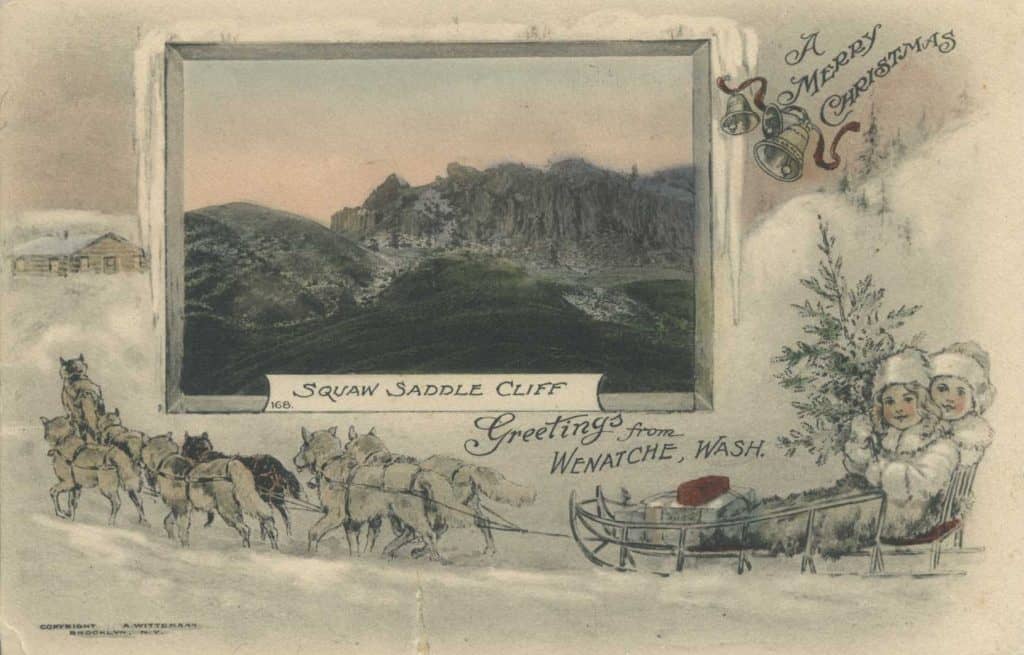 A
MERRY
CHRISTMAS
SQUAW SADDLE CLIFF
168.
Greetings from
WENATCHE, WASH.
COPYRIGHT A. WITTEMANN
BROOKLYN, N.Y.